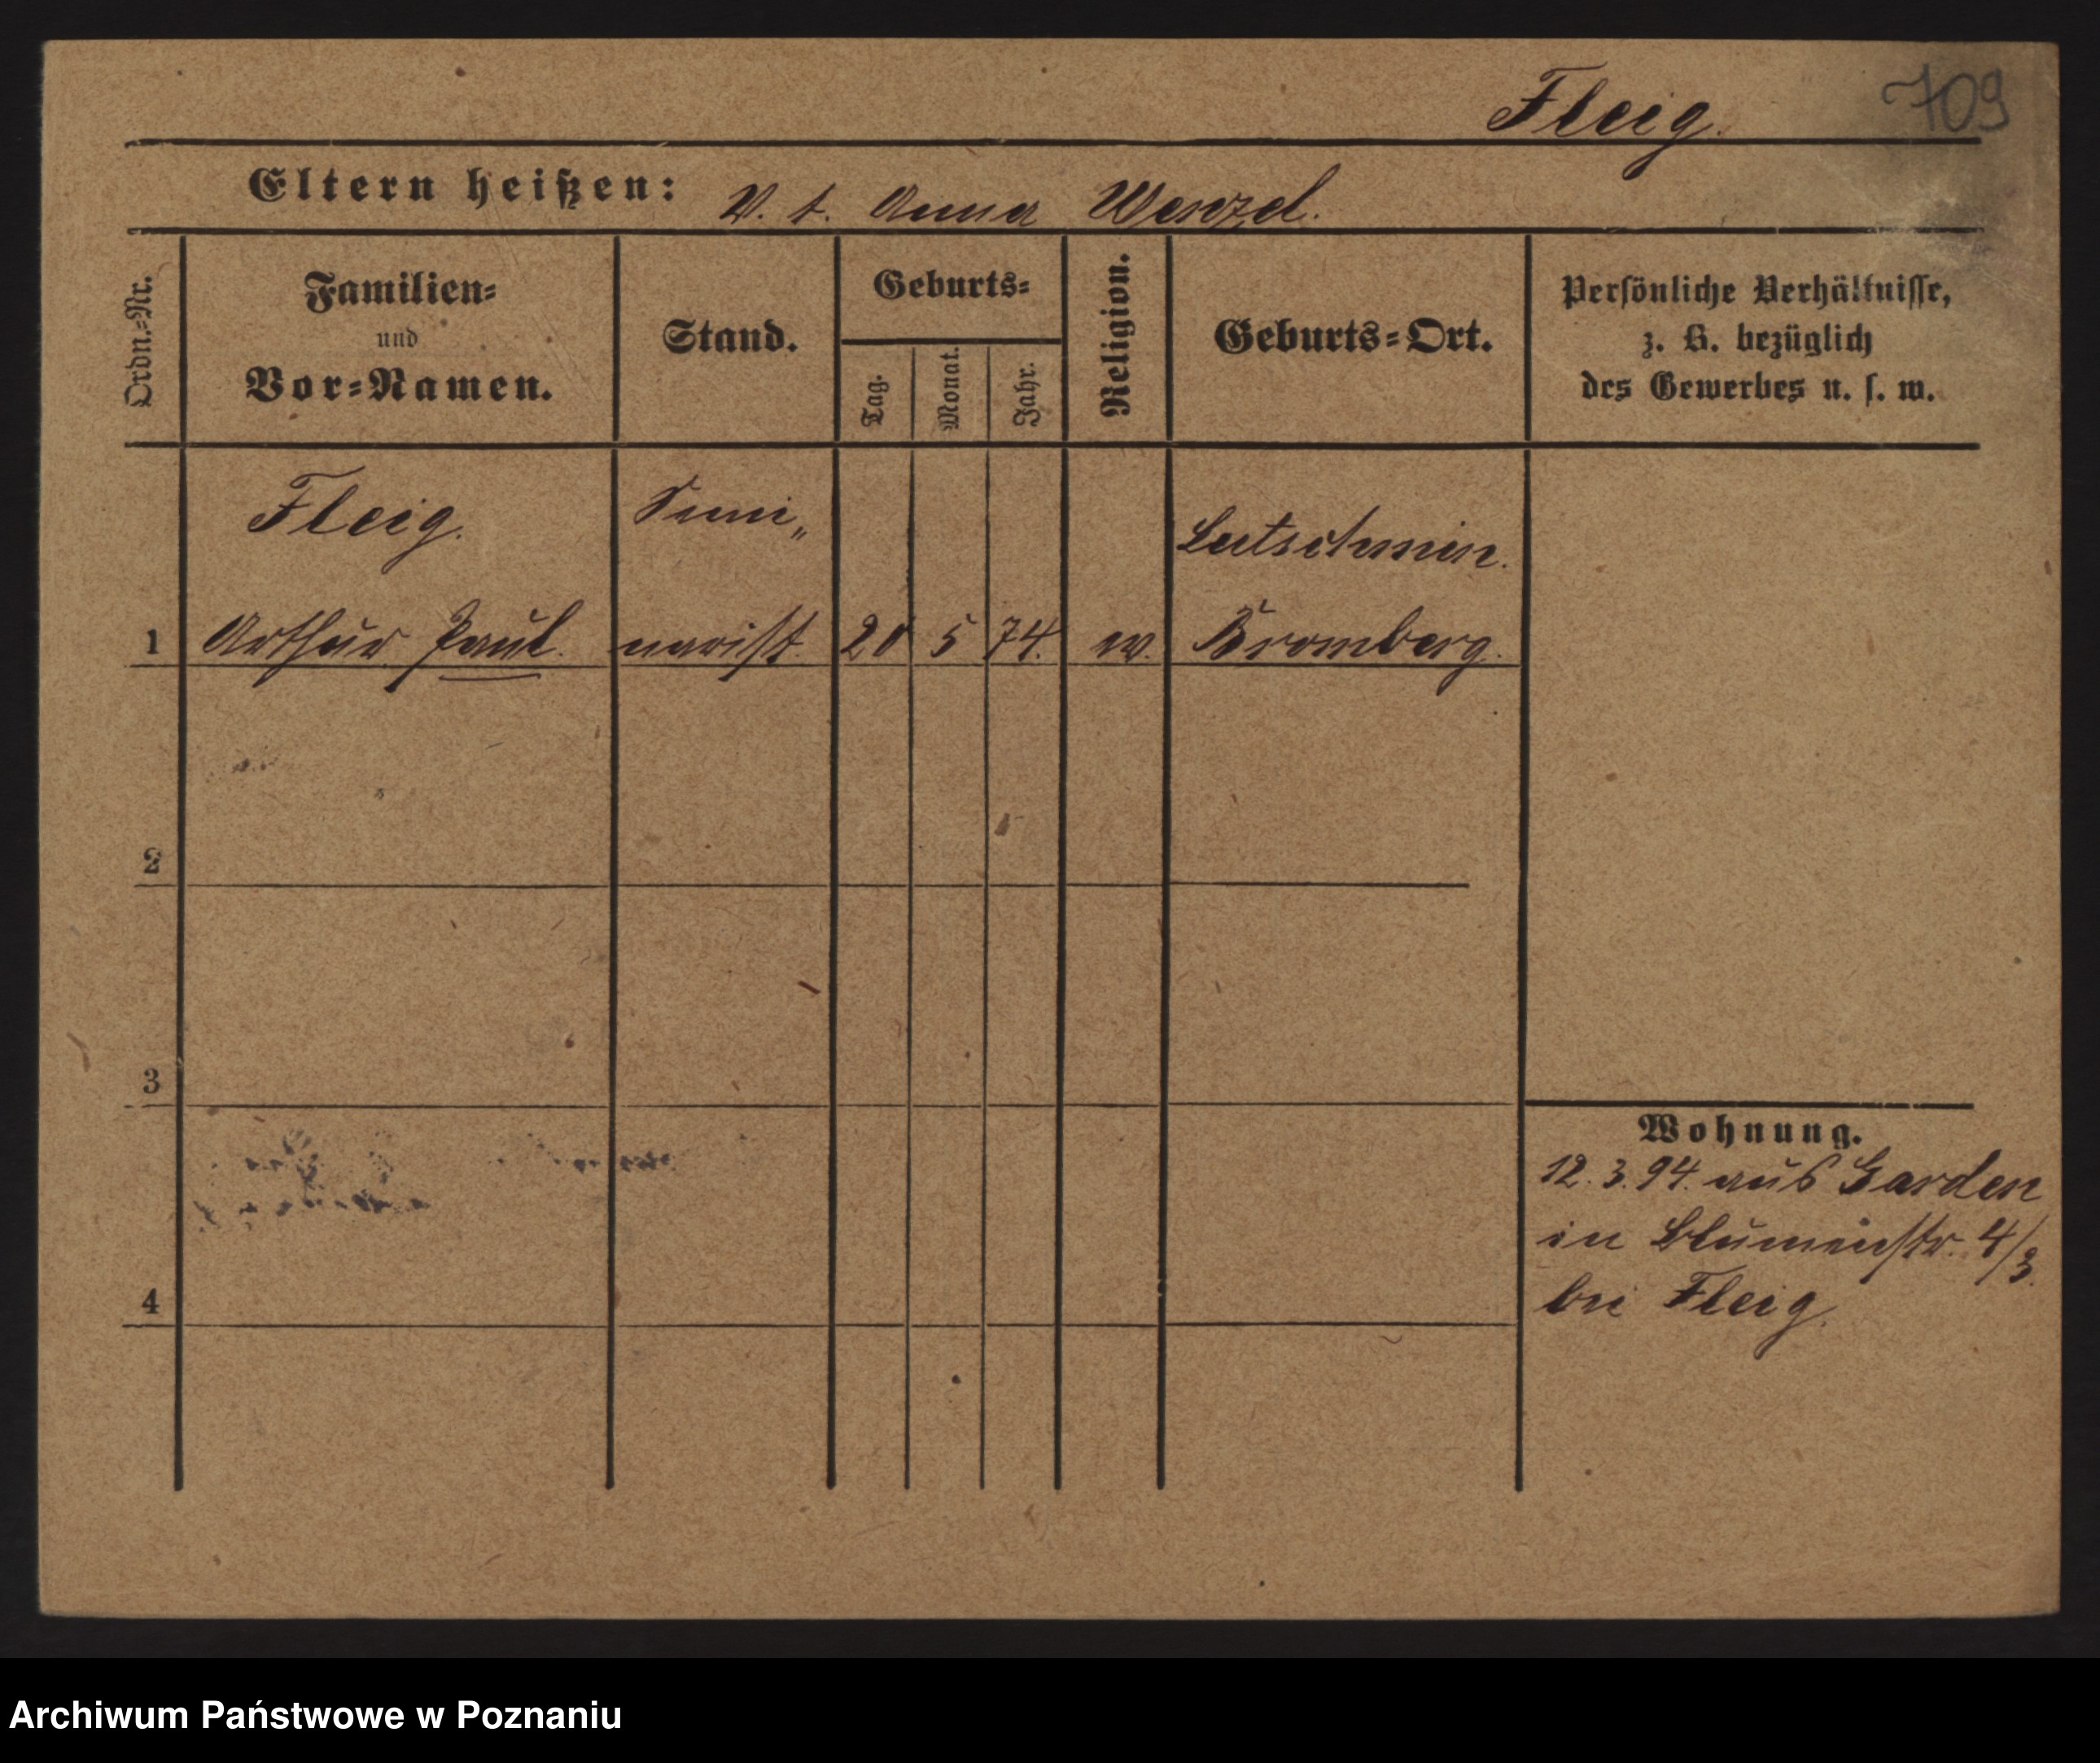 709
Fleig.
Eltern heißen: V. t. Anna Wenzel.
Ordn.=Nr.
Familien=
und
Vor=Namen.
Stand.
Geburts=
Tag.
Monat.
Jahr.
Religion.
Geburts=Ort.
Persönliche Verhältnisse,
z. B. bezüglich
des Gewerbes u. s. w.
Fleig. Semi„ Lutschmin.
1 Arthur Paul. narist 20 5 74. ev. Bromberg.
2
3
4
Wohnung.
12. 3. 94. aus Garden
in Blumenstr. 4/3.
bei Fleig.
Archiwum Państwowe w Poznaniu